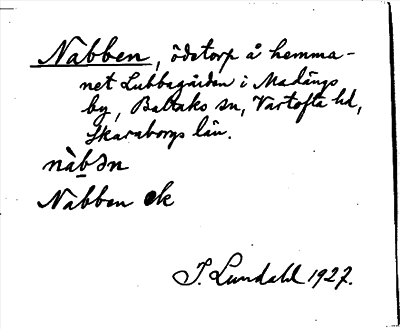 Nabben, ödetorp å hemma-
net Lubbagården i Madängs
by, Baltaks sn, Vartofta hd,
Skaraborgs län.
nàbən
Nabben ek
I. Lundahl 1927.